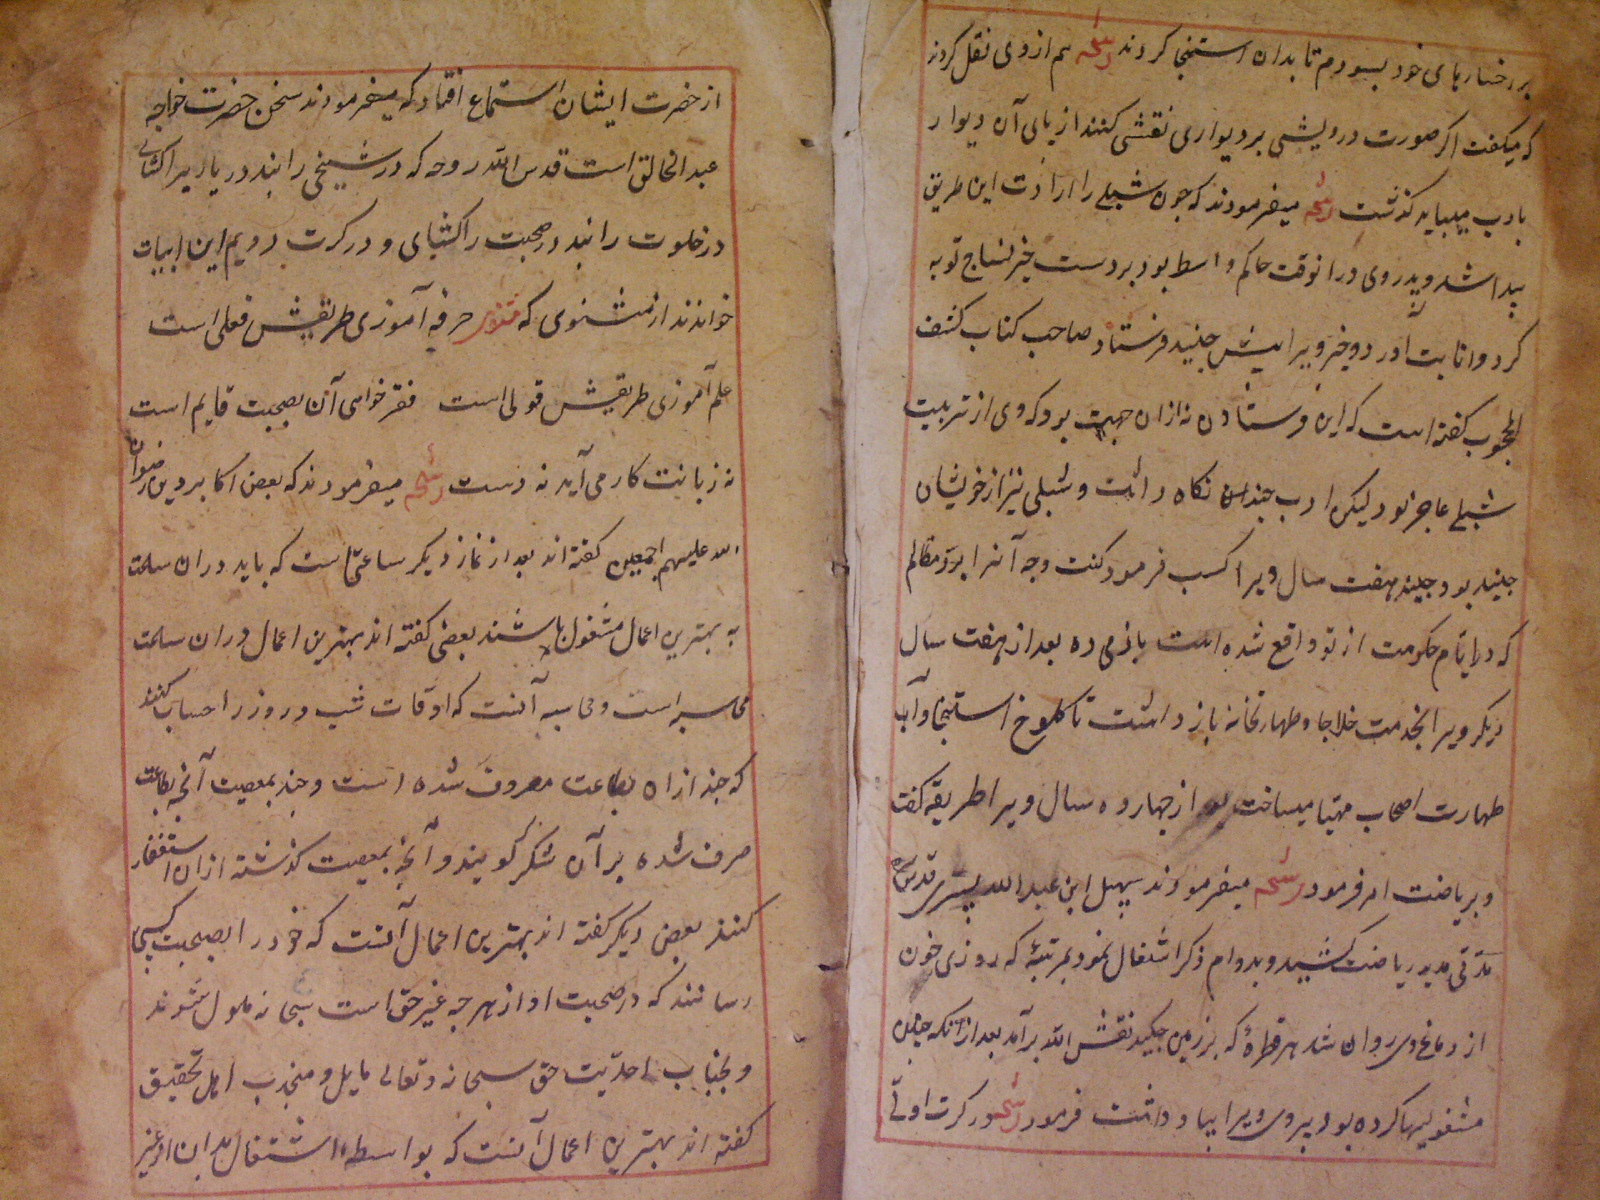 بر رخسارهای خود بسودم تا بدان استنجا کردند رشحه هم از وی نقل کردند
که میکفت اکر صورت درویشی بر دیواری نقشی کنند از پای آن دیوار
بادب میباید کذشت رشحه میفرمودند که چون شبلی را ارادت این طریق
پیدا شد و پدر وی در انوقت حاکم واسط بود بر دست خیر نساج توبه
کرد و انابت آورد و خیر ویرا پیش جنید فرستاد صاحب کتاب کشف
المحجوب کفته است که این فرستادن نه ازان جهت بود که وی از تربیت
شبلی عاجز بود لیکن ادب جنید نکاه داشت و شبلی نیز از خویشان
جنید بود جنید هفت سال ویرا کسب فرمود کفت وجه آنرا برد مظالم
که در ایام حکومت از تو واقع شده است بازمی ده بعد از هفت سال
دیکر ویرا بخدمت خلاجا و طهارتخانه باز داشت تا کلوخ استنجا و آب
طهارت اصحاب مهیا میساخت بعد از چهارده سال ویرا طریقه کفت
و بریاضت امر فرمود رشحه میفرمودند سهل ابن عبد الله تستری قدس سره
مدتی مدید ریاضت کشید و بدوام ذکر اشتغال نمود بمرتبهٔ که روزی خون
از دماغ وی روان شد هر قطرهٔ که بر زمین چکید نقش الله برآمد بعد از انکه چنین
مشغولیها کرده بود پیر وی ویرا بیاد داشت فرمود رشحه در کرت اولی
از حضرت ایشان استماع افتاد که میفرمودند سخن حضرت خواجه
عبد الخالق است قدس الله روحه که در شیخی را بند در یاریرا کشای
در خلوت را بند در صحبت را کشای و در کرت دویم این ابیات
خواندند از مثنوی که مثنوی حرفه آموزی طریقش فعلی است
علم آموزی طریقش قولی است فقر خواهی آن بصحبت قایم است
نه زبانت کار می آید نه دست رشحه میفرمودند که بعض اکابر دین رضوان
الله علیهم اجمعین کفته اند بعد از نماز دیکر ساعتی است که باید در ان ساعت
به بهترین اعمال مشغول باشند بعضی کفته اند بهترین اعمال در ان ساعت
محاسبه است و محاسبه آنست که اوقات شب و روز را حساب کنند
که چند ازان بطاعت مصروف شده است و چند بمعصیت آنچه بطاعت
صرف شده بر آن شکر کویند و آنچه بمعصیت کذشته ازان استغفار
کنند بعض دیکر کفته اند بهترین اعمال آنست که خود را بصحبت کسی
رسانند که در صحبت او از هر چه غیر حق است سبحانه ملول شوند
و بجناب احدیت حق سبحانه و تعالی مایل و منجذب اهل تحقیق
کفته اند بهترین اعمال آنست که بواسطهٔ اشتغال بدان از غیر